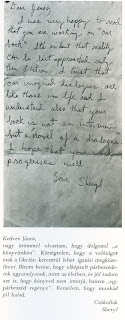 Dear János,
I was very happy to read
that you are working on "our
book". It's evident that reality
can be best approached only
thru fiction. I trust that
our imagined dialogues are
like those in life and I
understand also that your
book is not an interview
but a novel of a dialogue.
I hope that your work
progresses well.
Love
Sheryl
Kedves János,
nagy örömmel olvastam, hogy dolgozol „a
könyvünkön". Kétségtelen, hogy a valóságot
csak a fikción keresztül lehet igazán megközelíteni.
Bízom benne, hogy elképzelt párbeszédeink
ugyanolyanok, mint az életben, és jól tudom
azt is, hogy könyved nem interjú, hanem „egy
párbeszéd regénye". Remélem, hogy munkád
jól halad.
Csókollak
Sheryl